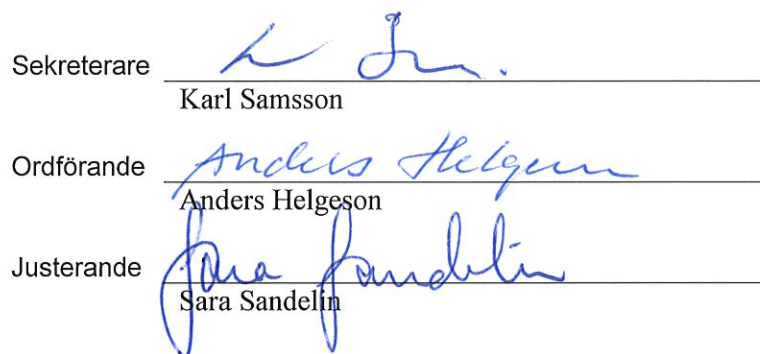 Sekreterare
Karl Samsson
Ordförande Anders Helgeson
Anders Helgeson
Justerande Sara Sandelin
Sara Sandelin